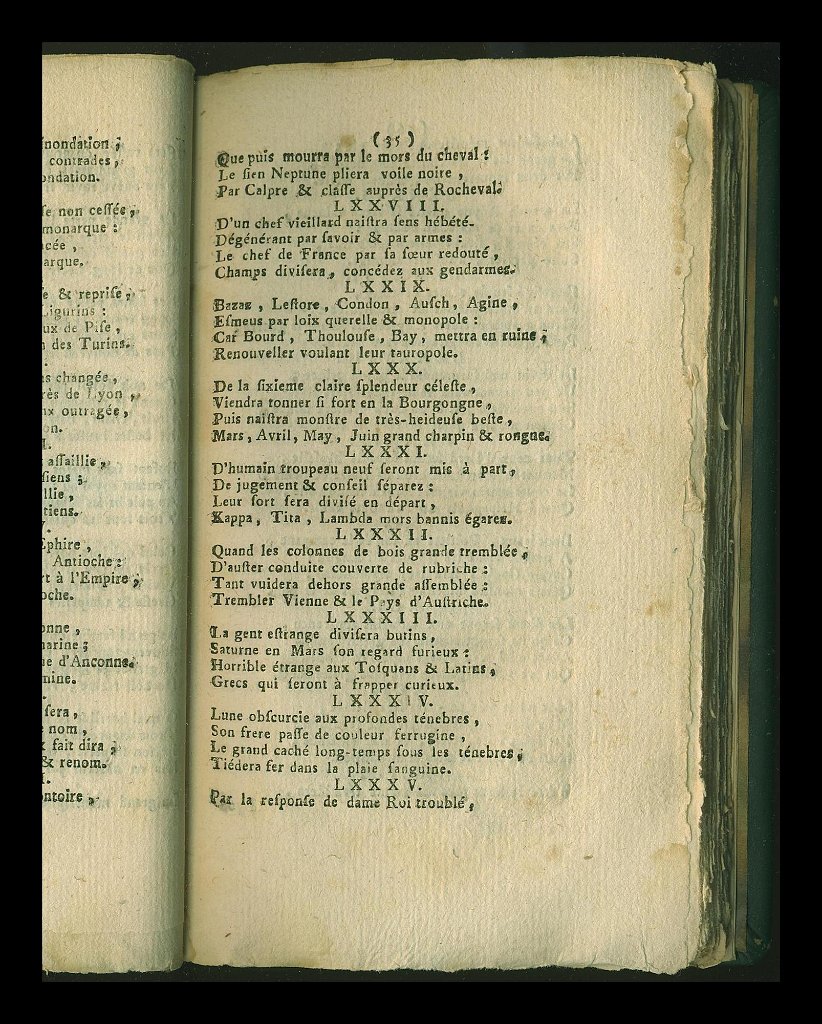 inondation ;
contrades ,
ondation.
se non cessée ,
monarque :
cée ,
arque.
e & reprise ,
Ligurins :
ux de Pise ,
des Turins.
s changée ,
rès de Lyon ,
x outragée ,
on.
I.
assaillie ,
siens ;
llie ,
tiens.
Ephire ,
Antioche :
rt à l'Empire ;
oche.
onne ,
marine ;
e d'Anconne.
mine.
sera ,
nom ,
fait dira ;
& renom.
ntoire ,
( 35 )
Que puis mourra par le mors du cheval :
Le ſien Neptune pliera voile noire ,
Par Calpre & claſſe auprès de Rocheval.
LXXVIII.
D'un chef vieillard naiſtra ſens hébété.
Dégénérant par ſavoir & par armes :
Le chef de France par ſa ſœur redouté ,
Champs diviſera , concédez aux gendarmes.
LXXIX.
Bazaz , Leſtore , Condon , Auſch , Agine ,
Eſmeus par loix querelle & monopole :
Car Bourd , Thoulouſe , Bay , mettra en ruine ;
Renouveller voulant leur tauropole.
LXXX.
De la ſixieme claire ſplendeur céleſte ,
Viendra tonner ſi fort en la Bourgongne ,
Puis naiſtra monſtre de très-heideuſe beſte ,
Mars , Avril , May , Juin grand charpin & rongne.
LXXXI.
D'humain troupeau neuf ſeront mis à part ,
De jugement & conſeil ſéparez :
Leur ſort ſera diviſé en départ ,
Kappa , Tita , Lambda mors bannis égarez.
LXXXII.
Quand les colonnes de bois grande tremblée ,
D'auſter conduite couverte de rubriche :
Tant vuidera dehors grande aſſemblée :
Trembler Vienne & le Pays d'Auſtriche.
LXXXIII.
La gent eſtrange diviſera butins ,
Saturne en Mars ſon regard furieux :
Horrible étrange aux Toſquans & Latins ,
Grecs qui ſeront à frapper curieux.
LXXXIV.
Lune obſcurcie aux profondes ténebres ,
Son frere paſſe de couleur ferrugine ,
Le grand caché long-temps ſous les ténebres ;
Tiédera fer dans la plaie ſanguine.
LXXXV.
Par la reſponſe de dame Roi troublé ,